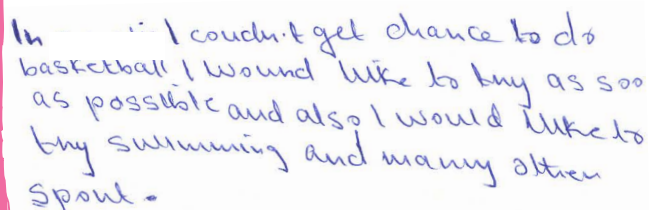 In I coudn't get chance to do
basketball I wound like to try as soo
as possible and also I would like to
try swimming and many other
sport.